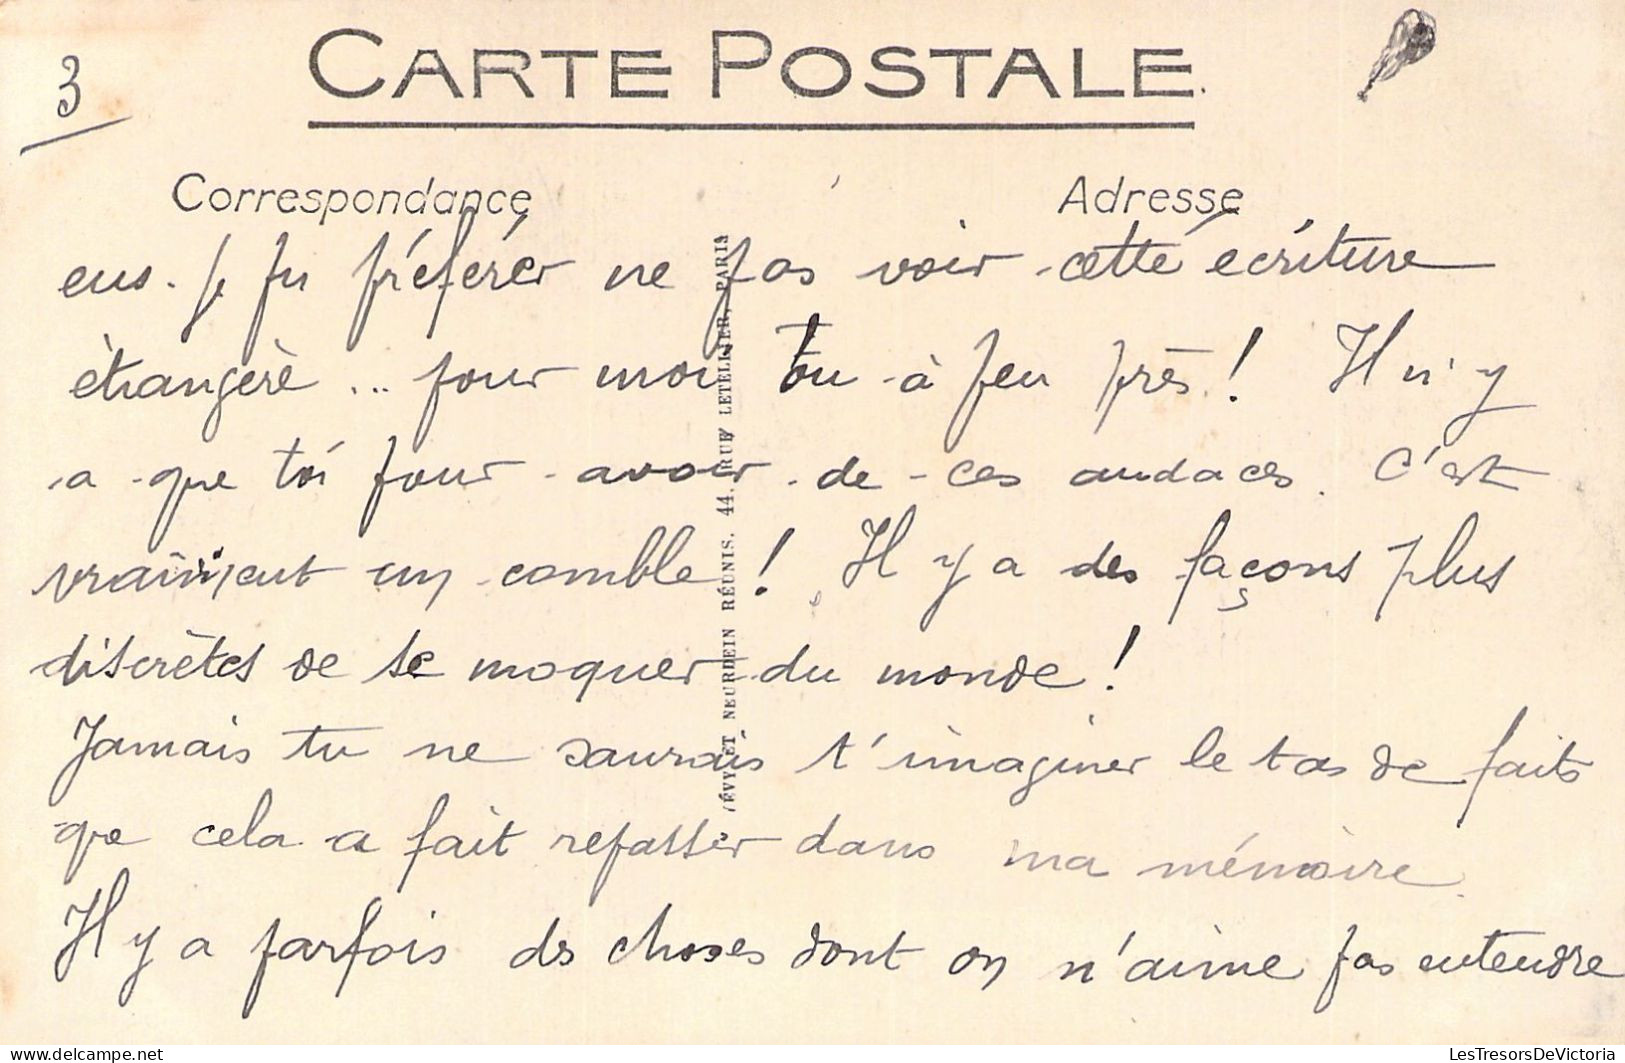 3
CARTE POSTALE
Correspondance
Adresse
eus. Je préférér ne pas voir cette écriture
étrangère ... pour moi ou à peu près ! Il n'y
a que toi pour avoir de ces audaces. C'est
vraiment un comble ! Il y a des façons plus
discrètes de se moquer du monde !
Jamais tu ne saurais t'imaginer le tas de faits
que cela a fait repasser dans ma mémoire.
Il y a parfois des choses dont on n'aime pas entendre
LÉVY ET NEURDEIN RÉUNIS, 44, RUE LETELLIER, PARIS
LesTresorsDeVictoria
www.delcampe.net